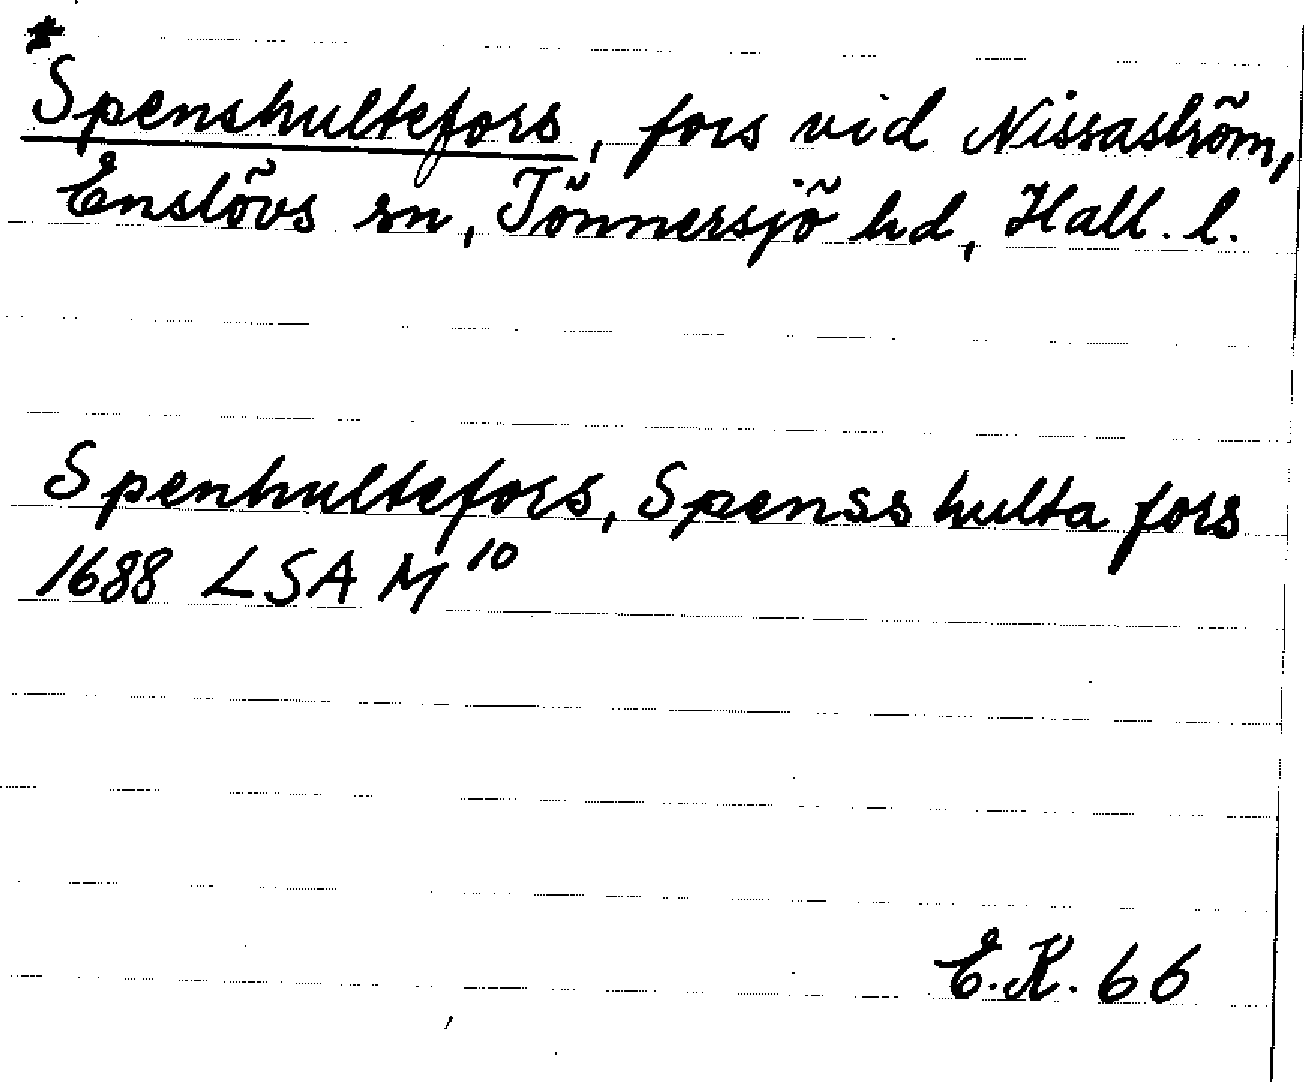 *
Spenshultefors, fors vid Nissaström,
Enslövs sn, Tönnersjö hd, Hall. l.
Spenhultefors, Spenss hulta fors
1688 LSA M¹⁰
E.K. 66